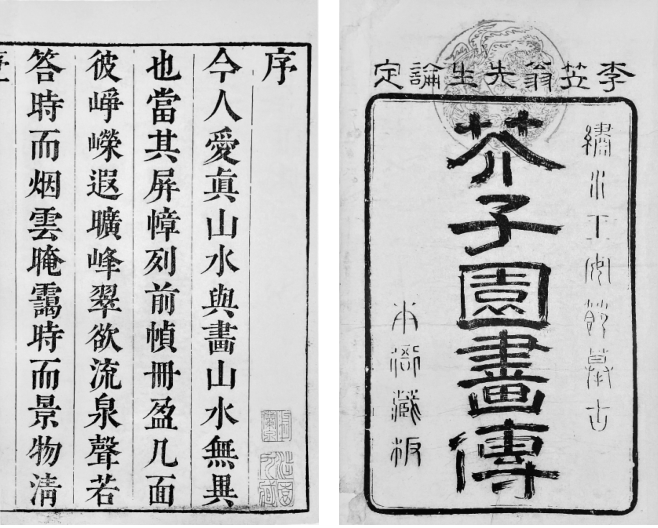 李笠翁先生論定
繡水王安節摹古
芥子園畫傳
本衙藏板
序
今人愛眞山水與畫山水無異
也當其屏幛列前幀冊盈几面
彼崢嶸遐曠峰翠欲流泉聲若
答時而烟雲晻靄時而景物清